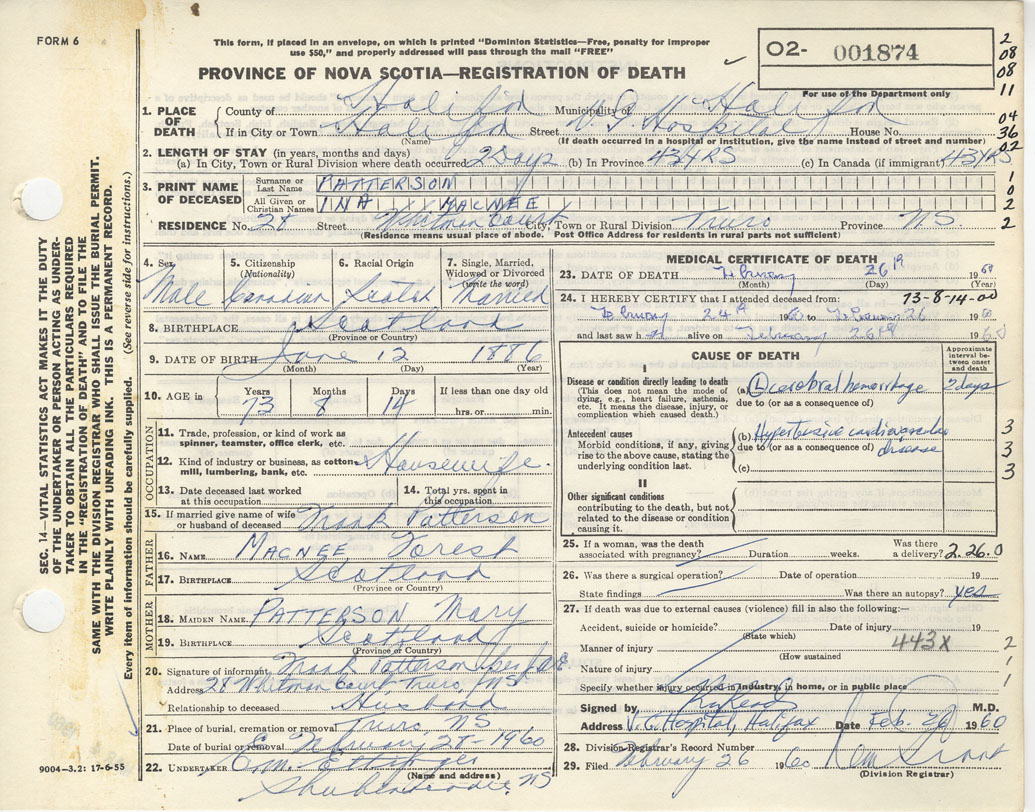 FORM 6
This form, if placed in an envelope, on which is printed "Dominion Statistics—Free, penalty for improper
use $50," and properly addressed will pass through the mail "FREE"
PROVINCE OF NOVA SCOTIA—REGISTRATION OF DEATH
O2- 001874
For use of the Department only
2
08
08
11
04
36
02
1
0
2
2
1. PLACE OF DEATH
County of Halifax Municipality of Halifax
If in City or Town Halifax Street V.G. Hospital House No.
(Name) (If death occurred in a hospital or institution, give the name instead of street and number)
2. LENGTH OF STAY (in years, months and days)
(a) In City, Town or Rural Division where death occurred 2 Days (b) In Province 43 YRS (c) In Canada (if immigrant) 43 YRS
3. PRINT NAME OF DECEASED
Surname or Last Name PATTERSON
All Given or Christian Names INA MACNEE
RESIDENCE No. 28 Street Whitman Court City, Town or Rural Division Truro Province N.S.
(Residence means usual place of abode. Post Office Address for residents in rural parts not sufficient)
4. Sex Male
5. Citizenship (Nationality) Canadian
6. Racial Origin Scotch
7. Single, Married, Widowed or Divorced (write the word) Married
8. BIRTHPLACE Scotland
(Province or Country)
9. DATE OF BIRTH June 12 1886
(Month) (Day) (Year)
10. AGE in Years 73 Months 8 Days 14 If less than one day old hrs. or min.
OCCUPATION
11. Trade, profession, or kind of work as spinner, teamster, office clerk, etc.
12. Kind of industry or business, as cotton-mill, lumbering, bank, etc. Housewife.
13. Date deceased last worked at this occupation
14. Total yrs. spent in this occupation
15. If married give name of wife or husband of deceased Mark Patterson
FATHER
16. NAME MACNEE Forest
17. BIRTHPLACE Scotland
(Province or Country)
MOTHER
18. MAIDEN NAME PATTERSON Mary
19. BIRTHPLACE Scotland
(Province or Country)
20. Signature of informant Mark Patterson
Address 28 Whitman Court Truro, NS
Relationship to deceased Husband
21. Place of burial, cremation or removal Truro NS
Date of burial or removal February 28-1960
22. UNDERTAKER
(Name and address)
Shubenacadie, NS
9004—3.2: 17-6-55
SEC. 14—VITAL STATISTICS ACT MAKES IT THE DUTY
OF THE UNDERTAKER OR PERSON ACTING AS UNDER-
TAKER TO OBTAIN ALL THE PARTICULARS REQUIRED
IN THE "REGISTRATION OF DEATH" AND TO FILE THE
SAME WITH THE DIVISION REGISTRAR WHO SHALL ISSUE THE BURIAL PERMIT.
WRITE PLAINLY WITH UNFADING INK. THIS IS A PERMANENT RECORD.
Every item of information should be carefully supplied. (See reverse side for instructions.)
MEDICAL CERTIFICATE OF DEATH
23. DATE OF DEATH February 26th 1960
(Month) (Day) (Year)
24. I HEREBY CERTIFY that I attended deceased from: 73-8-14-00
February 24th 1960 to February 26 1960
and last saw h alive on February 26th 1960
CAUSE OF DEATH
Approximate interval between onset and death
I
Disease or condition directly leading to death
(This does not mean the mode of dying, e.g., heart failure, asthenia, etc. It means the disease, injury, or complication which caused death.)
(a) (L) cerebral hemorrhage 2 days
due to (or as a consequence of)
Antecedent causes
Morbid conditions, if any, giving rise to the above cause, stating the underlying condition last.
(b) Hypertensive cardiovascular
due to (or as a consequence of) disease
(c)
3
3
3
II
Other significant conditions
contributing to the death, but not related to the disease or condition causing it.
25. If a woman, was the death associated with pregnancy? Duration weeks. Was there a delivery? 2.26.0
26. Was there a surgical operation? Date of operation 19
State findings Was there an autopsy? yes
27. If death was due to external causes (violence) fill in also the following:—
Accident, suicide or homicide? Date of injury 19
(State which)
443X
Manner of injury 2
(How sustained)
Nature of injury 1
Specify whether injury occurred in industry, in home, or in public place 1
Signed by M.D.
Address V.G. Hospital, Halifax Date Feb. 26 1960
28. Division Registrar's Record Number
29. Filed February 26 1960
(Division Registrar)